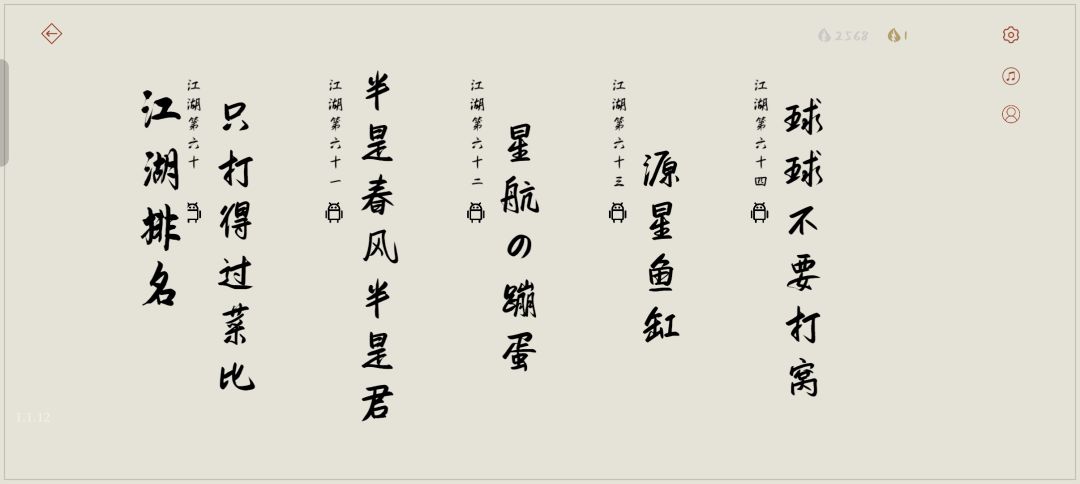 2568
1
江湖排名
江湖第六十
只打得过菜比
江湖第六十一
半是春风半是君
江湖第六十二
星航の蹦蛋
江湖第六十三
源星鱼缸
江湖第六十四
球球不要打窝
1.1.12